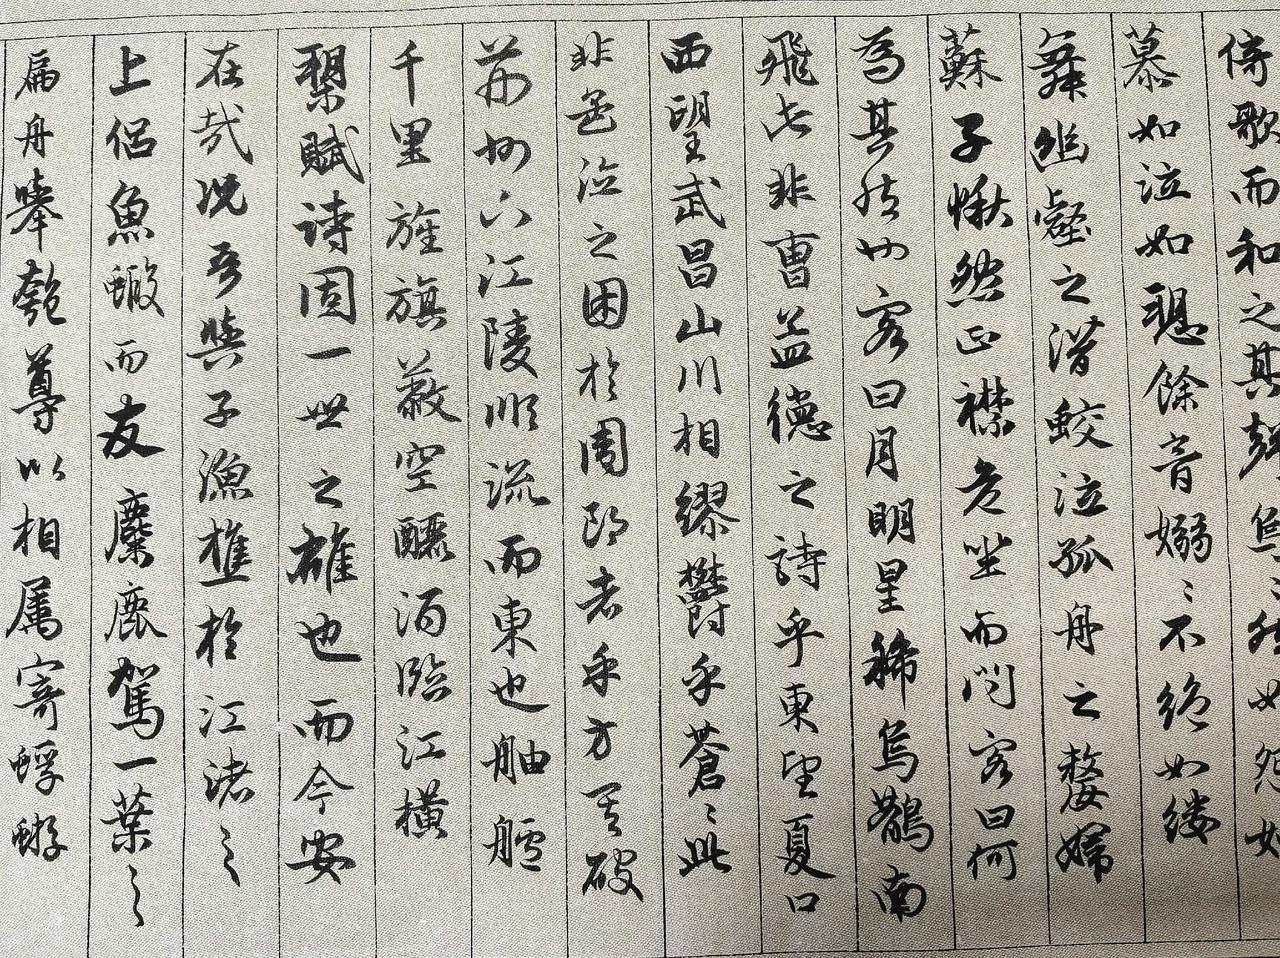 倚歌而和之其聲烏〻然如怨如
慕如泣如愬餘音嫋〻不絕如縷
舞幽壑之潛蛟泣孤舟之嫠婦
蘇子愀然正襟危坐而問客曰何
為其然也客曰月明星稀烏鵲南
飛此非曹孟德之詩乎東望夏口
西望武昌山川相繆鬱乎蒼〻此
非孟德之困於周郎者乎方其破
荊州下江陵順流而東也舳艫
千里旌旗蔽空釃酒臨江橫
槊賦詩固一世之雄也而今安
在哉況吾與子漁樵於江渚之
上侶魚蝦而友麋鹿駕一葉之
扁舟舉匏尊以相属寄蜉蝣